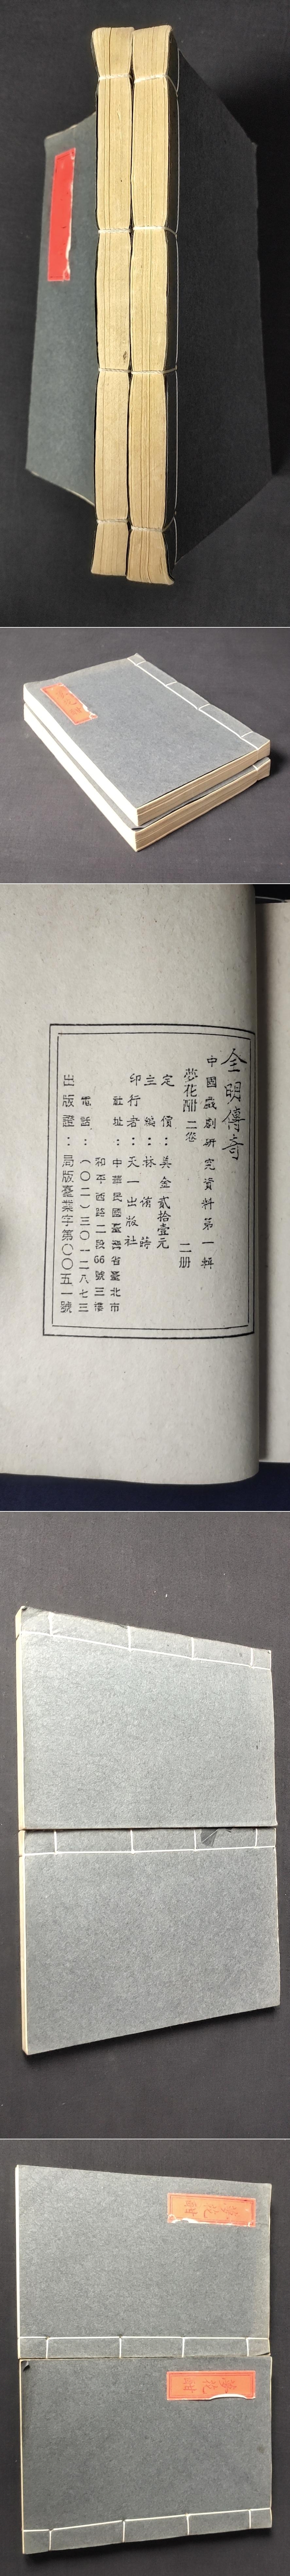 全明傳奇
中國戲劇研究資料第一輯
夢花酣 二卷 二册
定價：美金貳拾壹元
主編：林侑蒔
印行者：天一出版社
社址：中華民國臺灣省臺北市
和平西路二段66號三樓
電話：(〇二)三〇一二八七三
出版證：局版臺業字第〇〇五一號